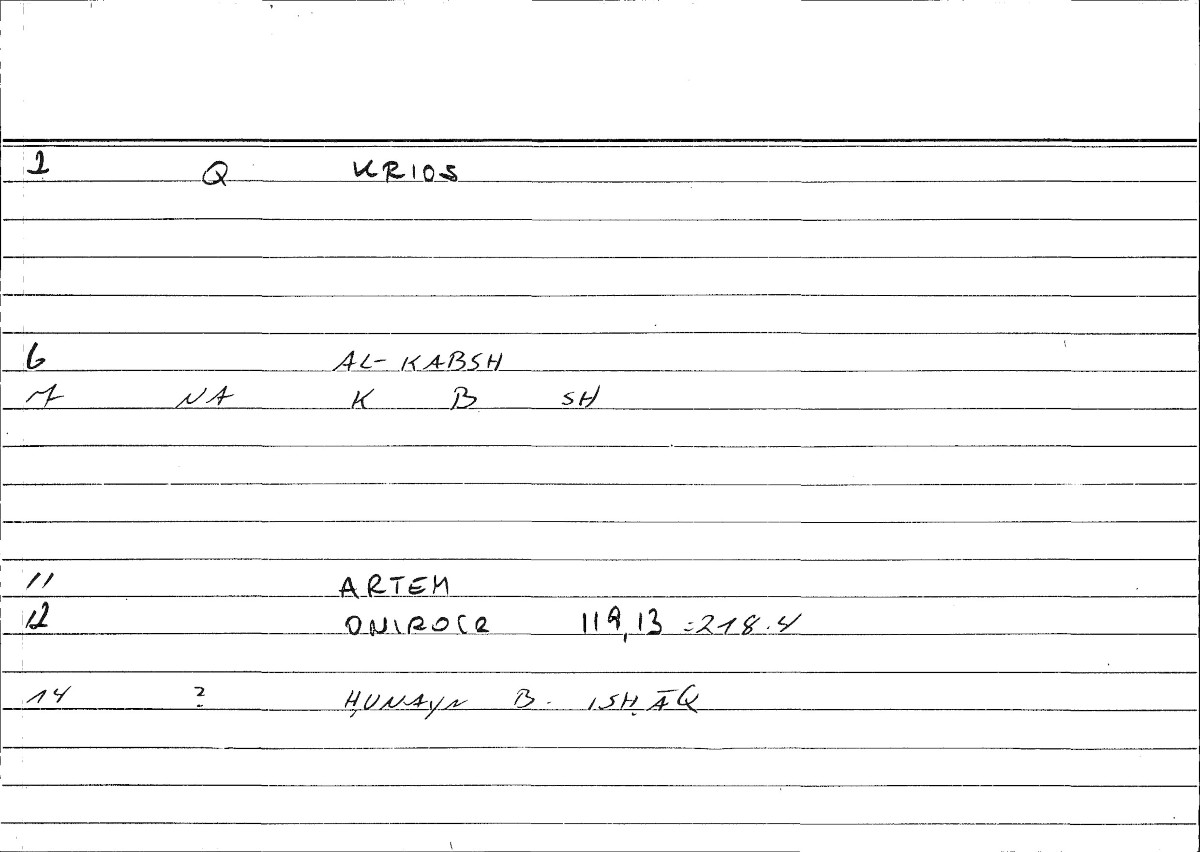 1 Q KRIOS
6 AL-KABSH
7 NA K B SH
11 ARTEM
12 ONIROCR 119,13 =218.4
14 ? ḤUNAYN B. ISḤĀQ